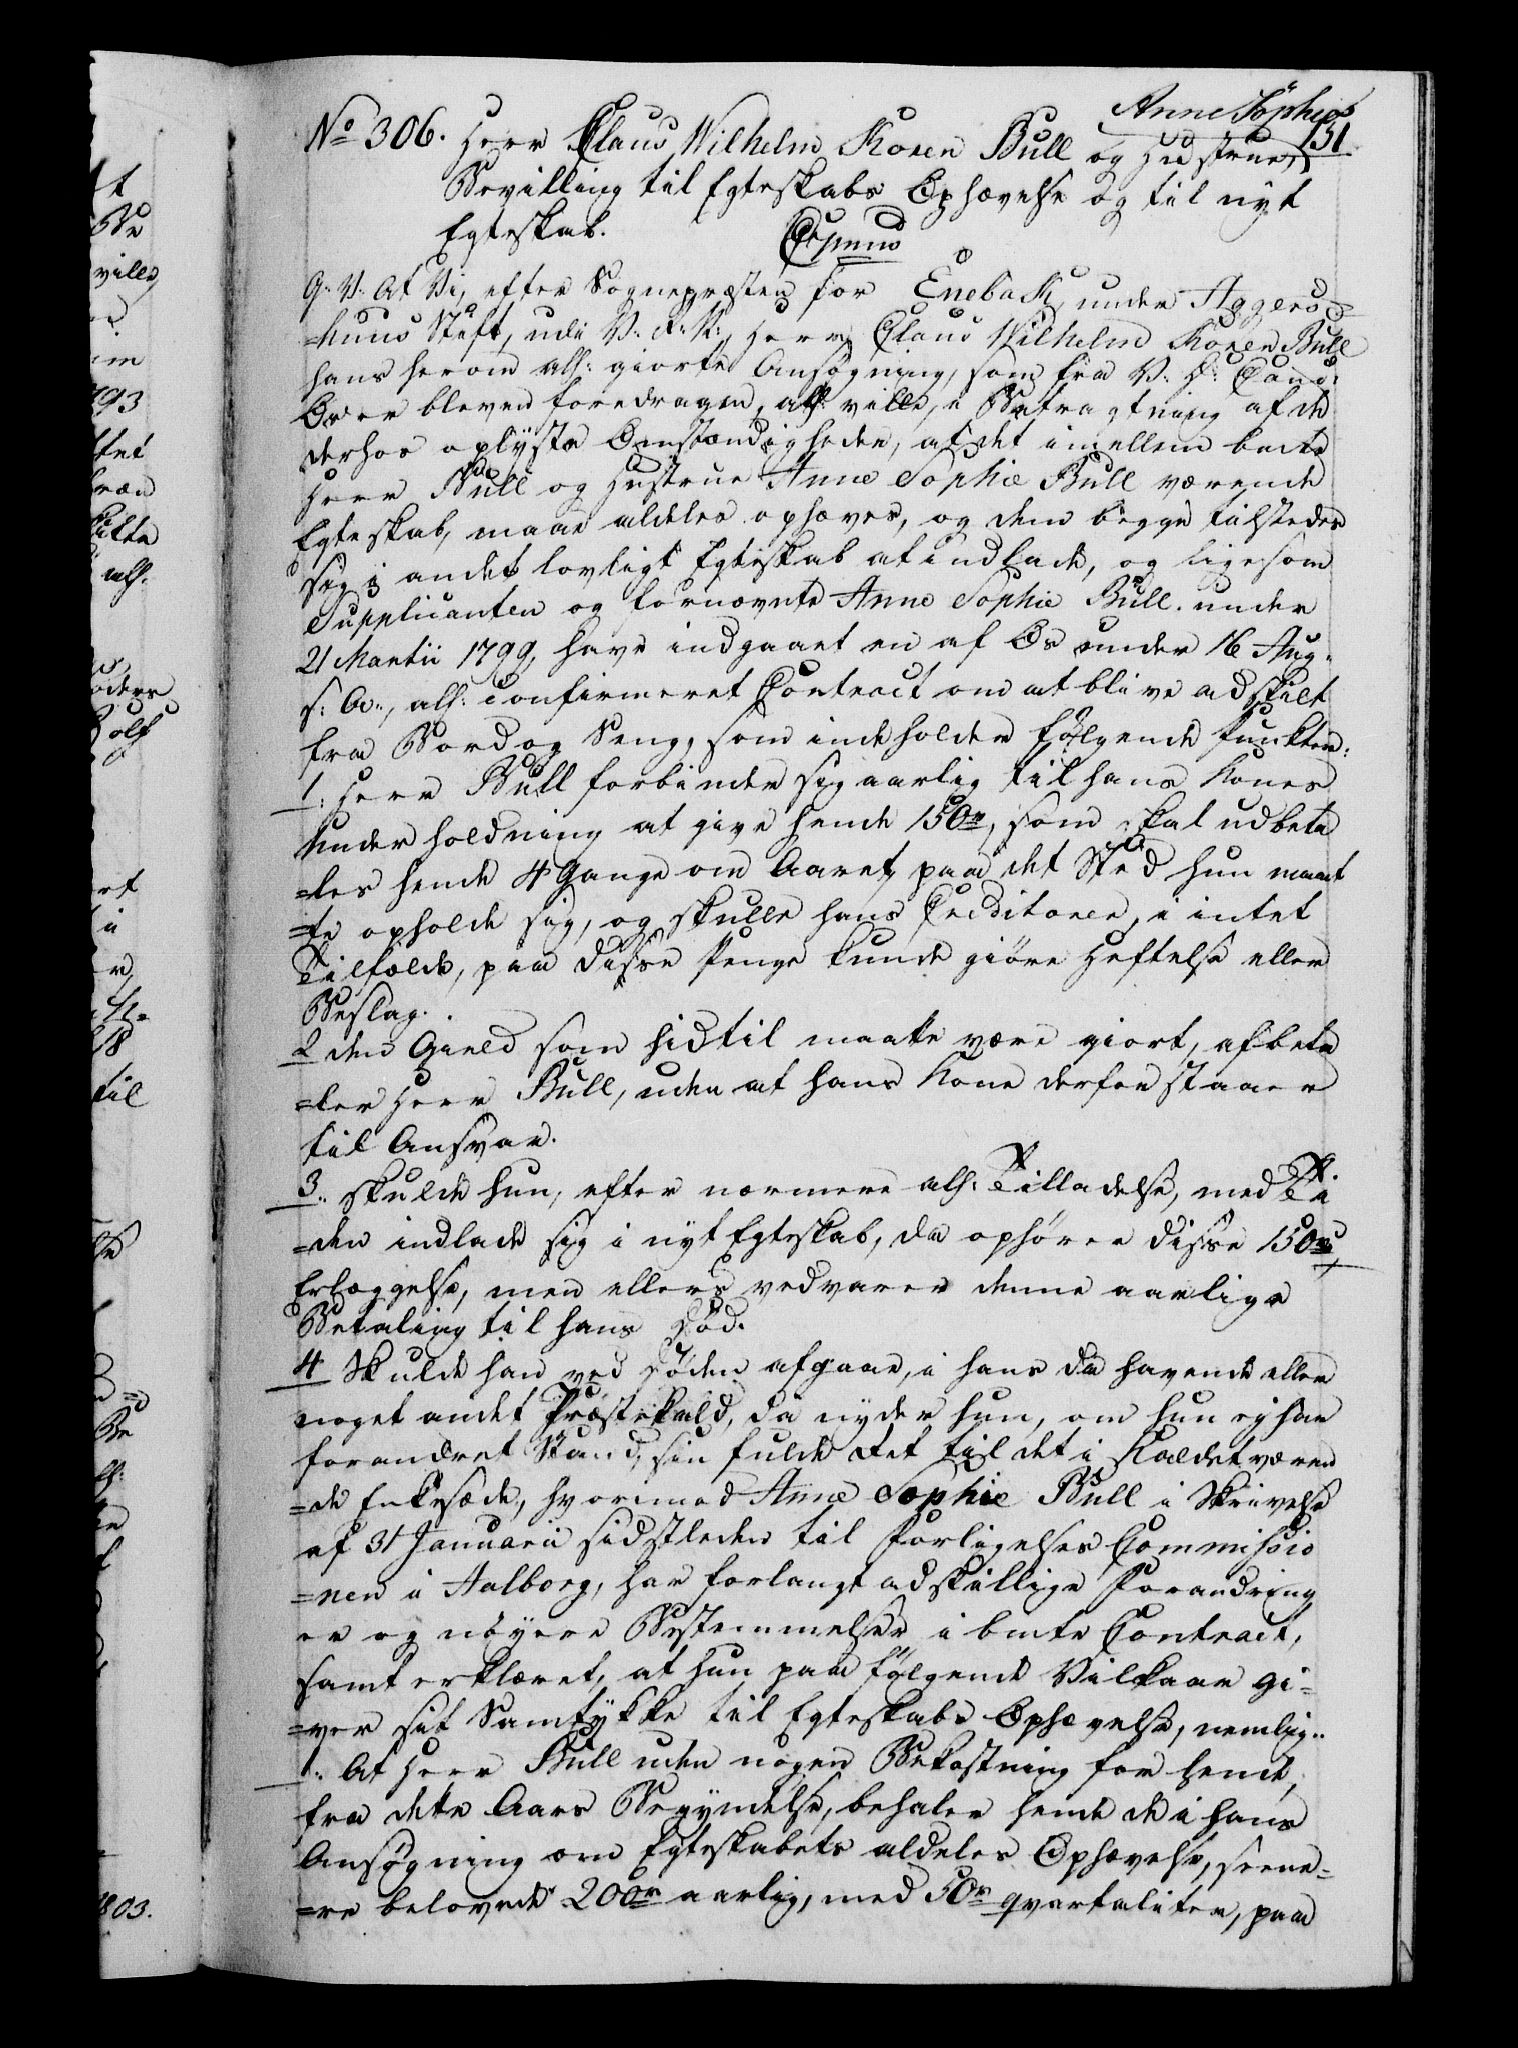 Anne Sophies
151
No 306. Herr Claus Wilhelm Koren Bull og Hustrues
Bevilling til Egteskabs Ophævelse og til nyt
Egteskab. Gratis
G: V: At Vi, efter Sognepræsten for Enebak, under Aggers=
=huus Stift, udi V: R: N:, Herr Claus Wilhelm Koren Bull
hans herom allh: giorte Ansøgning, som fra V: D: Canc:
Os er bleven foredragen, allh: ville, i Betragtning af de
derhos oplyste Omstændigheder, at det imellem bemte
Herr Bull og Hustrue Anne Sophie Bull værende
Egteskab, maae aldeles ophæves, og dem begge tilstedes
sig i andet lovligt Egteskab at indlade, og ligesom
Supplicanten og fornævnte Anne Sophie Bull under
21 Martii 1799, have indgaaet en af Os under 16 Aug:
s: A:, allh: confirmeret Contract om at blive adskilt
fra Bord og Seng, som indeholder følgende Punkter:
1: Herr Bull forbinder sig aarlig til hans Kones
Underholdning at give hende 150 rd, som skal udbeta
=les hende 4 Gange om Aaret, paa det Sted hun maat
=te opholde sig, og skulle hans Creditorer, i intet
Tilfælde, paa disse Penge kunde giøre Heftelse eller
Beslag.
2 den Gield som hidtil maatte være giort, afbeta
=ler Herr Bull, uden at hans Kone derfor staaer
til Ansvar.
3. skulde hun, efter nærmere allh: Tilladelse, med Ti
=den indlade sig i nyt Egteskab, da ophører disse 150 rd
Erlæggelse, men ellers vedvarer denne aarlige
Betaling til hans Død.
4 Skulde han ved Døden afgaae, i hans da havende eller
noget andet Præstekald, da nyder hun, om hun ej har
forandret Stand, sin fulde Ret til det i Kaldet væren
=de Enkesæde, hvorimod Anne Sophie Bull i Skrivelse
af 31 Januarii sidstleden til Forligelses Commissio
=nen i Aalborg, har forlangt adskillige Forandring
er og nøyere Bestemmelser i bemte Contract,
samt erklæret, at hun paa følgende Vilkaar gi=
=ver sit Samtykke til Egteskabs Ophævelse, nemlig:
1: At Herr Bull uden nogen Bekostning for hende,
fra dette Aars Begyndelse, betaler hende de i hans
Ansøgning om Egteskabets aldeles Ophævelse, seene=
=re belovede 200 rd aarlig, med 50 rd qvartaliter, paa